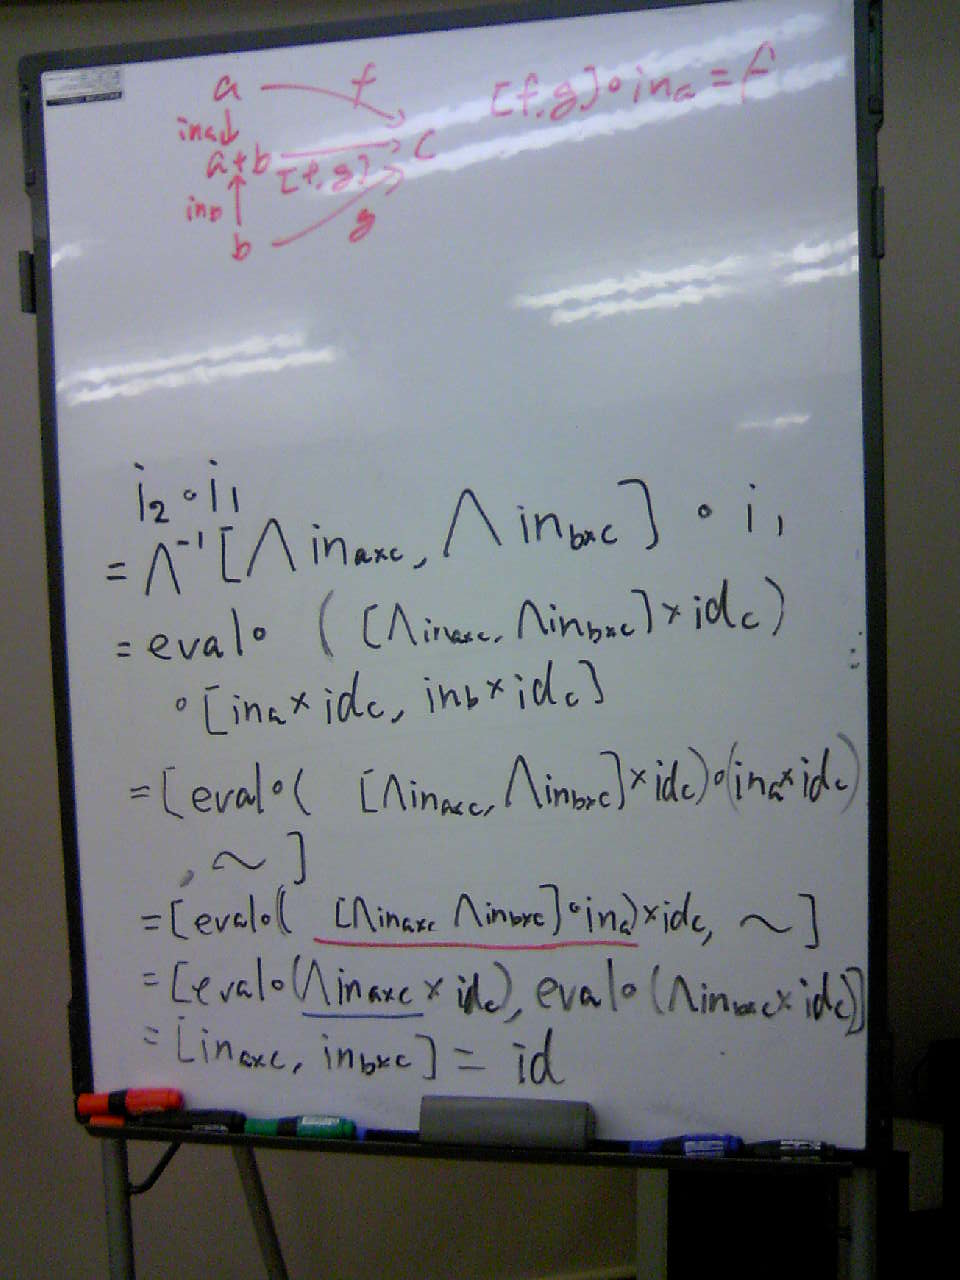 a f [f,g]∘in_a = f
in_a
a+b [f,g] c
in_b
b g
i₂∘i₁
= Λ⁻¹[Λin_{a×c}, Λin_{b×c}]∘i₁
= eval∘([Λin_{a×c}, Λin_{b×c}]×id_c)
∘[in_a×id_c, in_b×id_c]
= [eval∘([Λin_{a×c}, Λin_{b×c}]×id_c)∘(in_a×id_c)
, ~]
= [eval∘([Λin_{a×c} Λin_{b×c}]∘in_a)×id_c, ~]
= [eval∘(Λin_{a×c}×id_c), eval∘(Λin_{b×c}×id_c)]
= [in_{a×c}, in_{b×c}] = id